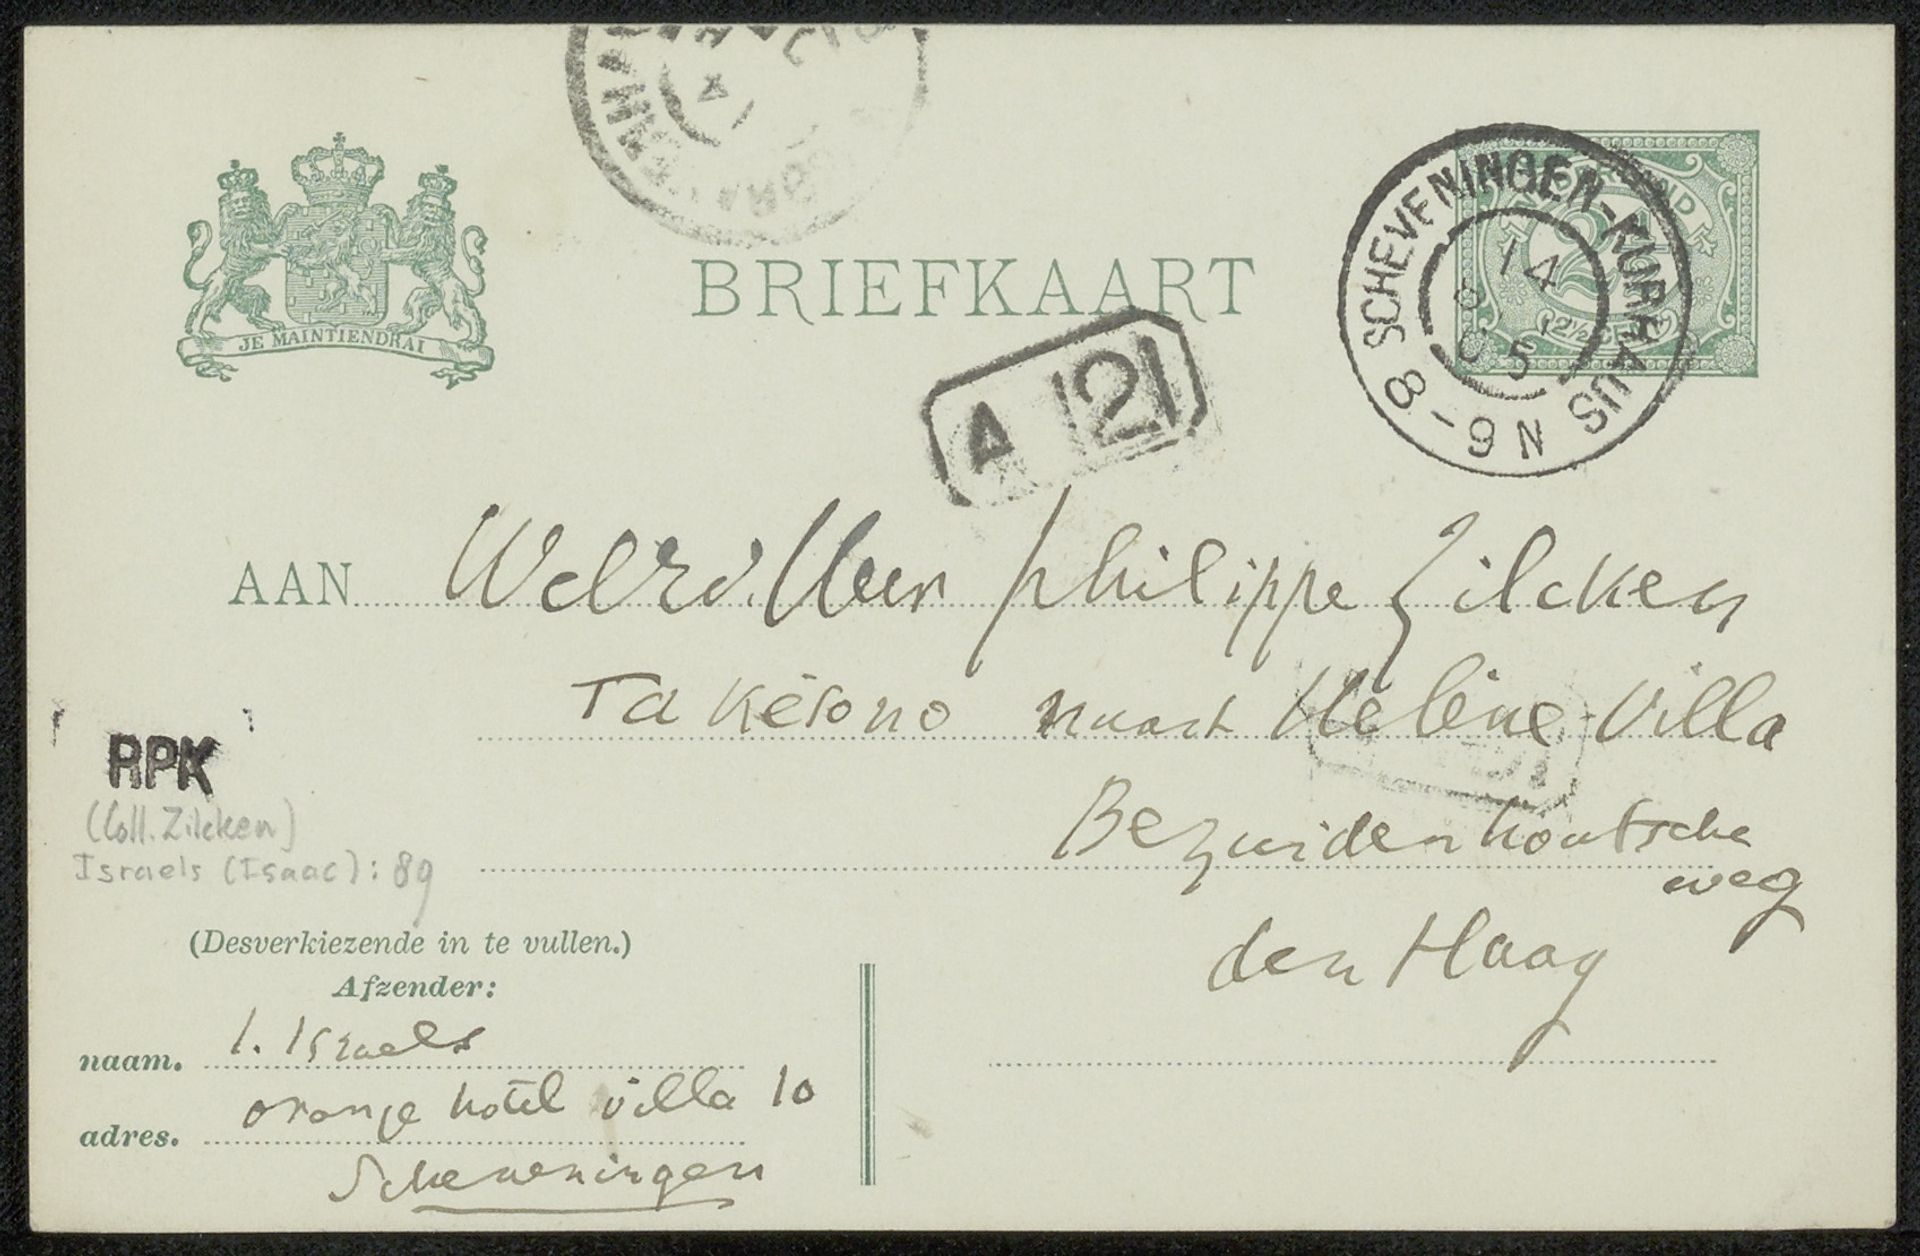 JE MAINTIENDRAI
BRIEFKAART
SCHEVENINGEN-KURHAUS
14
8
05
8-9N
2½ CENT
A 2
AAN Philippe Zilcken
Takêsono naast Helène-Villa
Bezuidenhoutsche
weg
den Haag
RPK
(Coll. Zilcken)
Israels (Isaac): 89
(Desverkiezende in te vullen.)
Afzender:
naam. I. Israels
adres. oranje hotel villa 10
Scheveningen